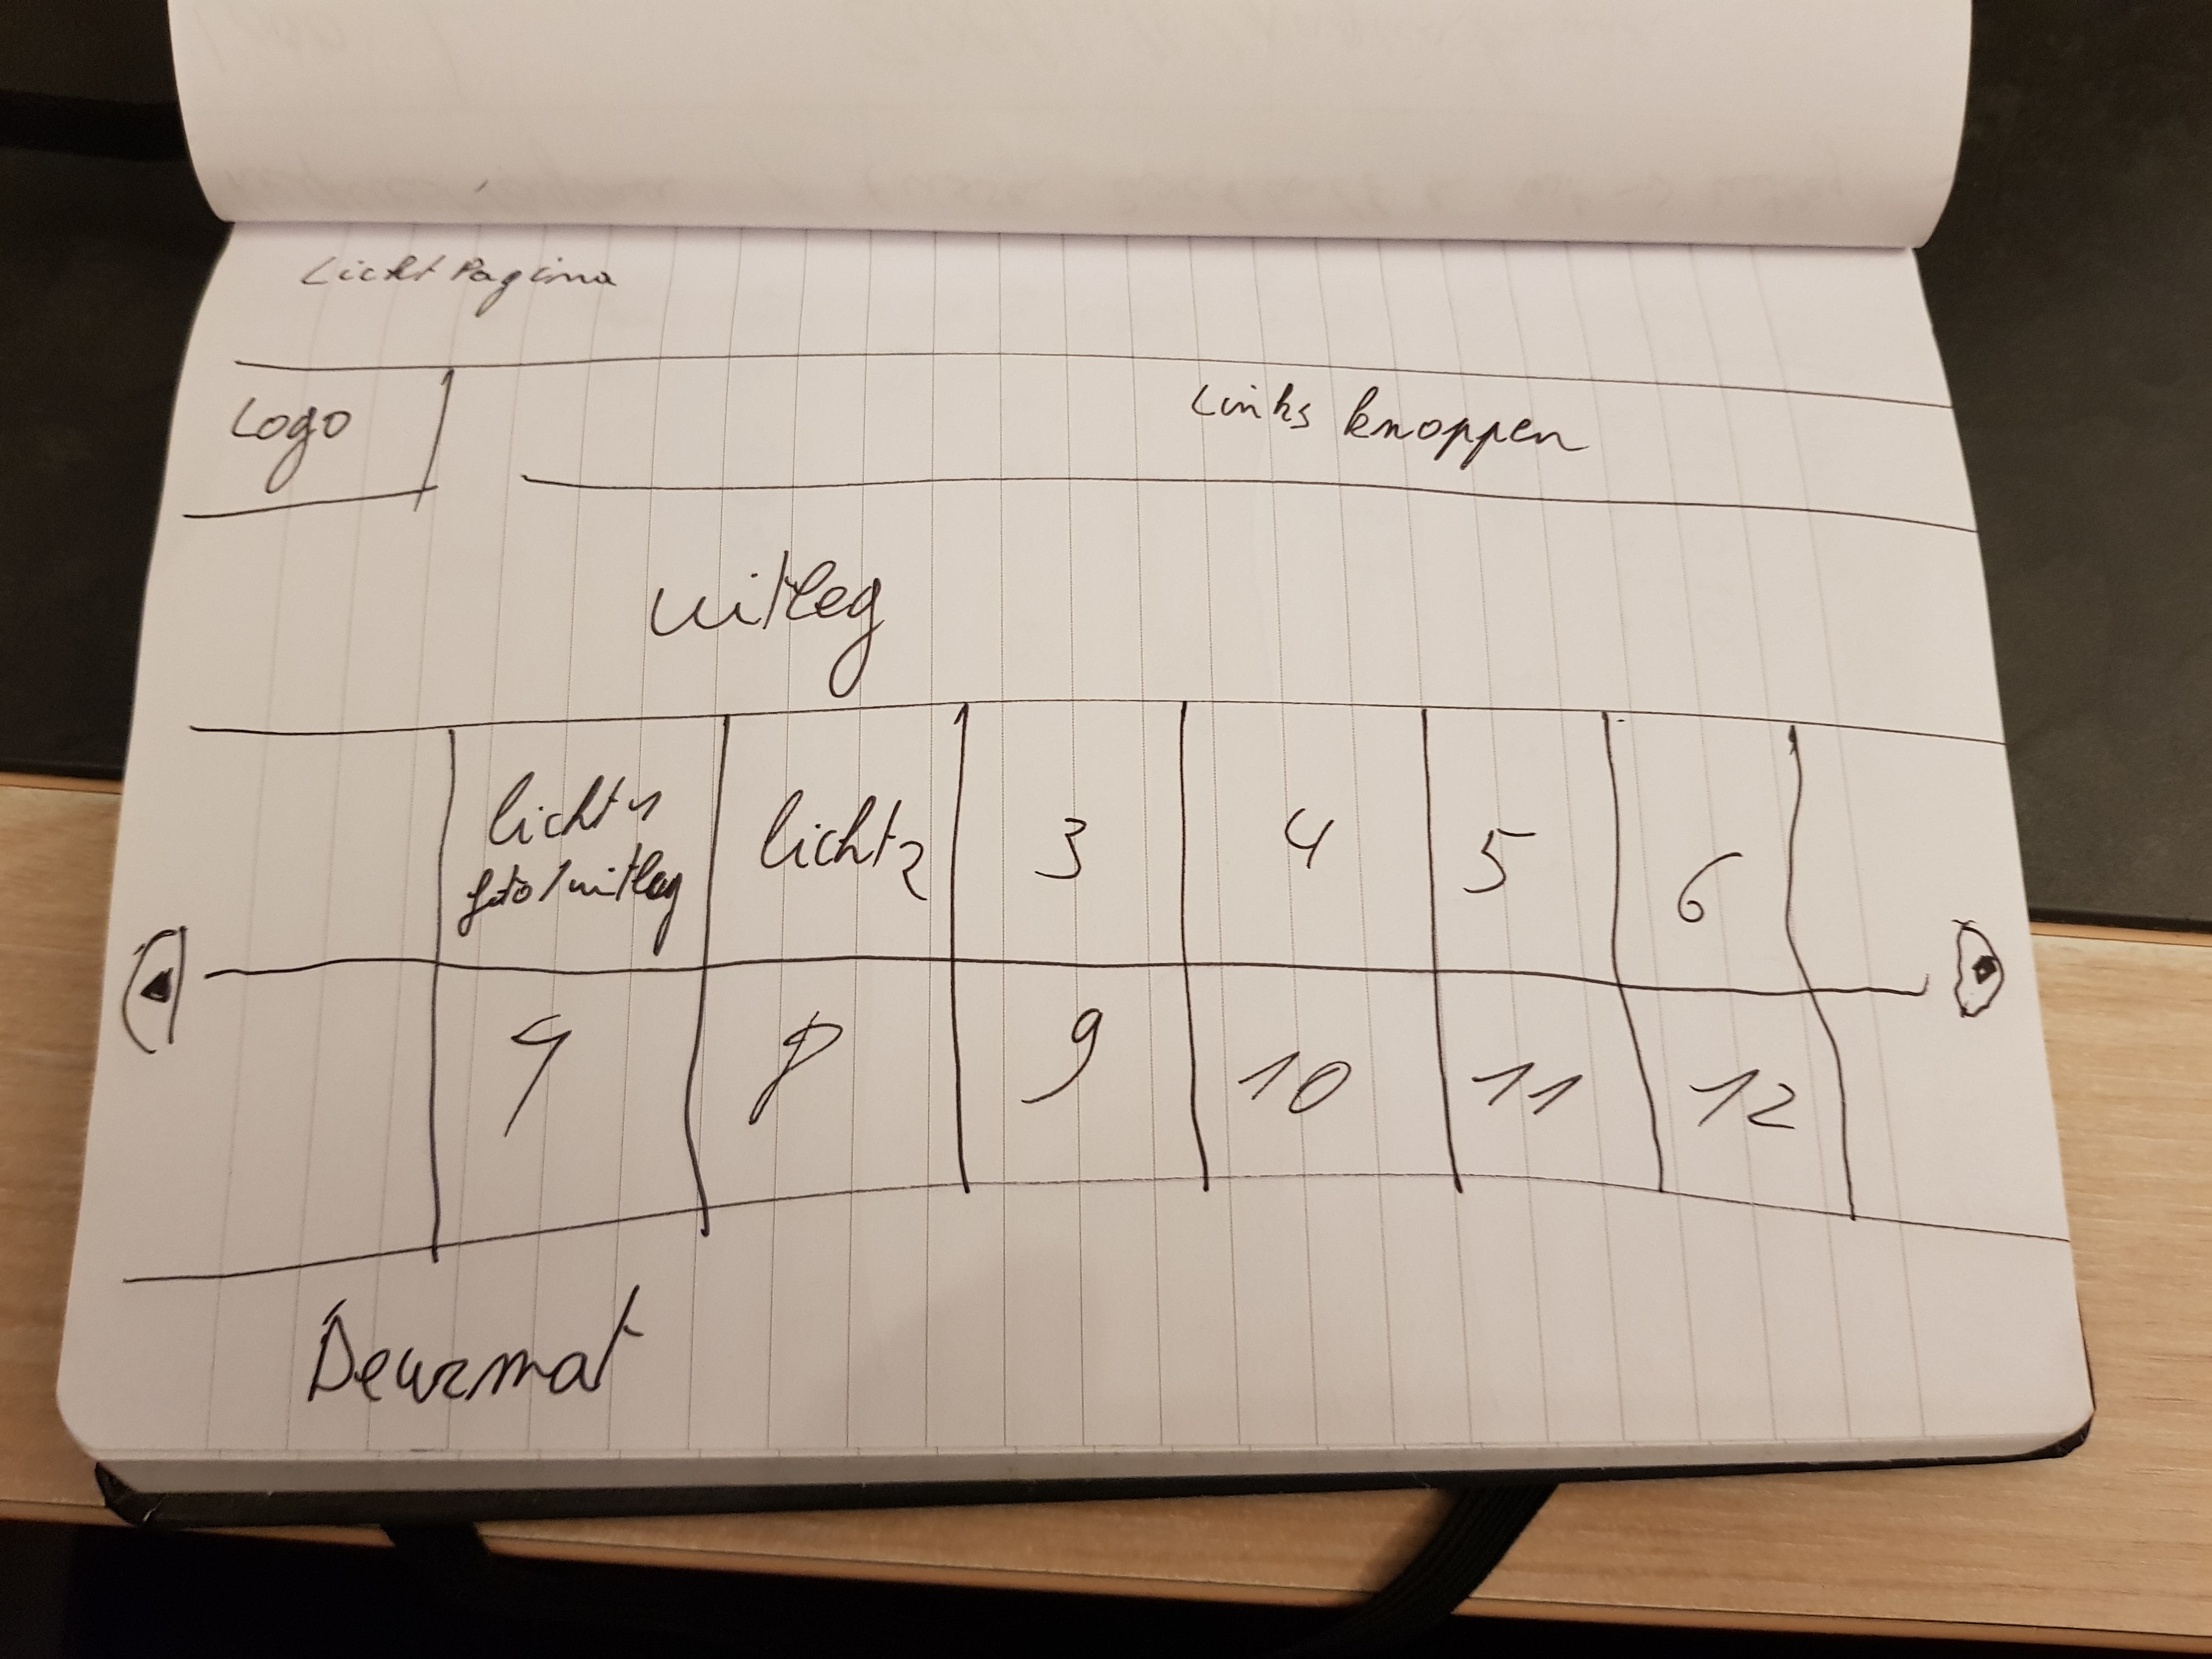 Licht pagina
Logo
Links knoppen
uitleg
licht 1
foto/uitleg
licht 2
3
4
5
6
7
8
9
10
11
12